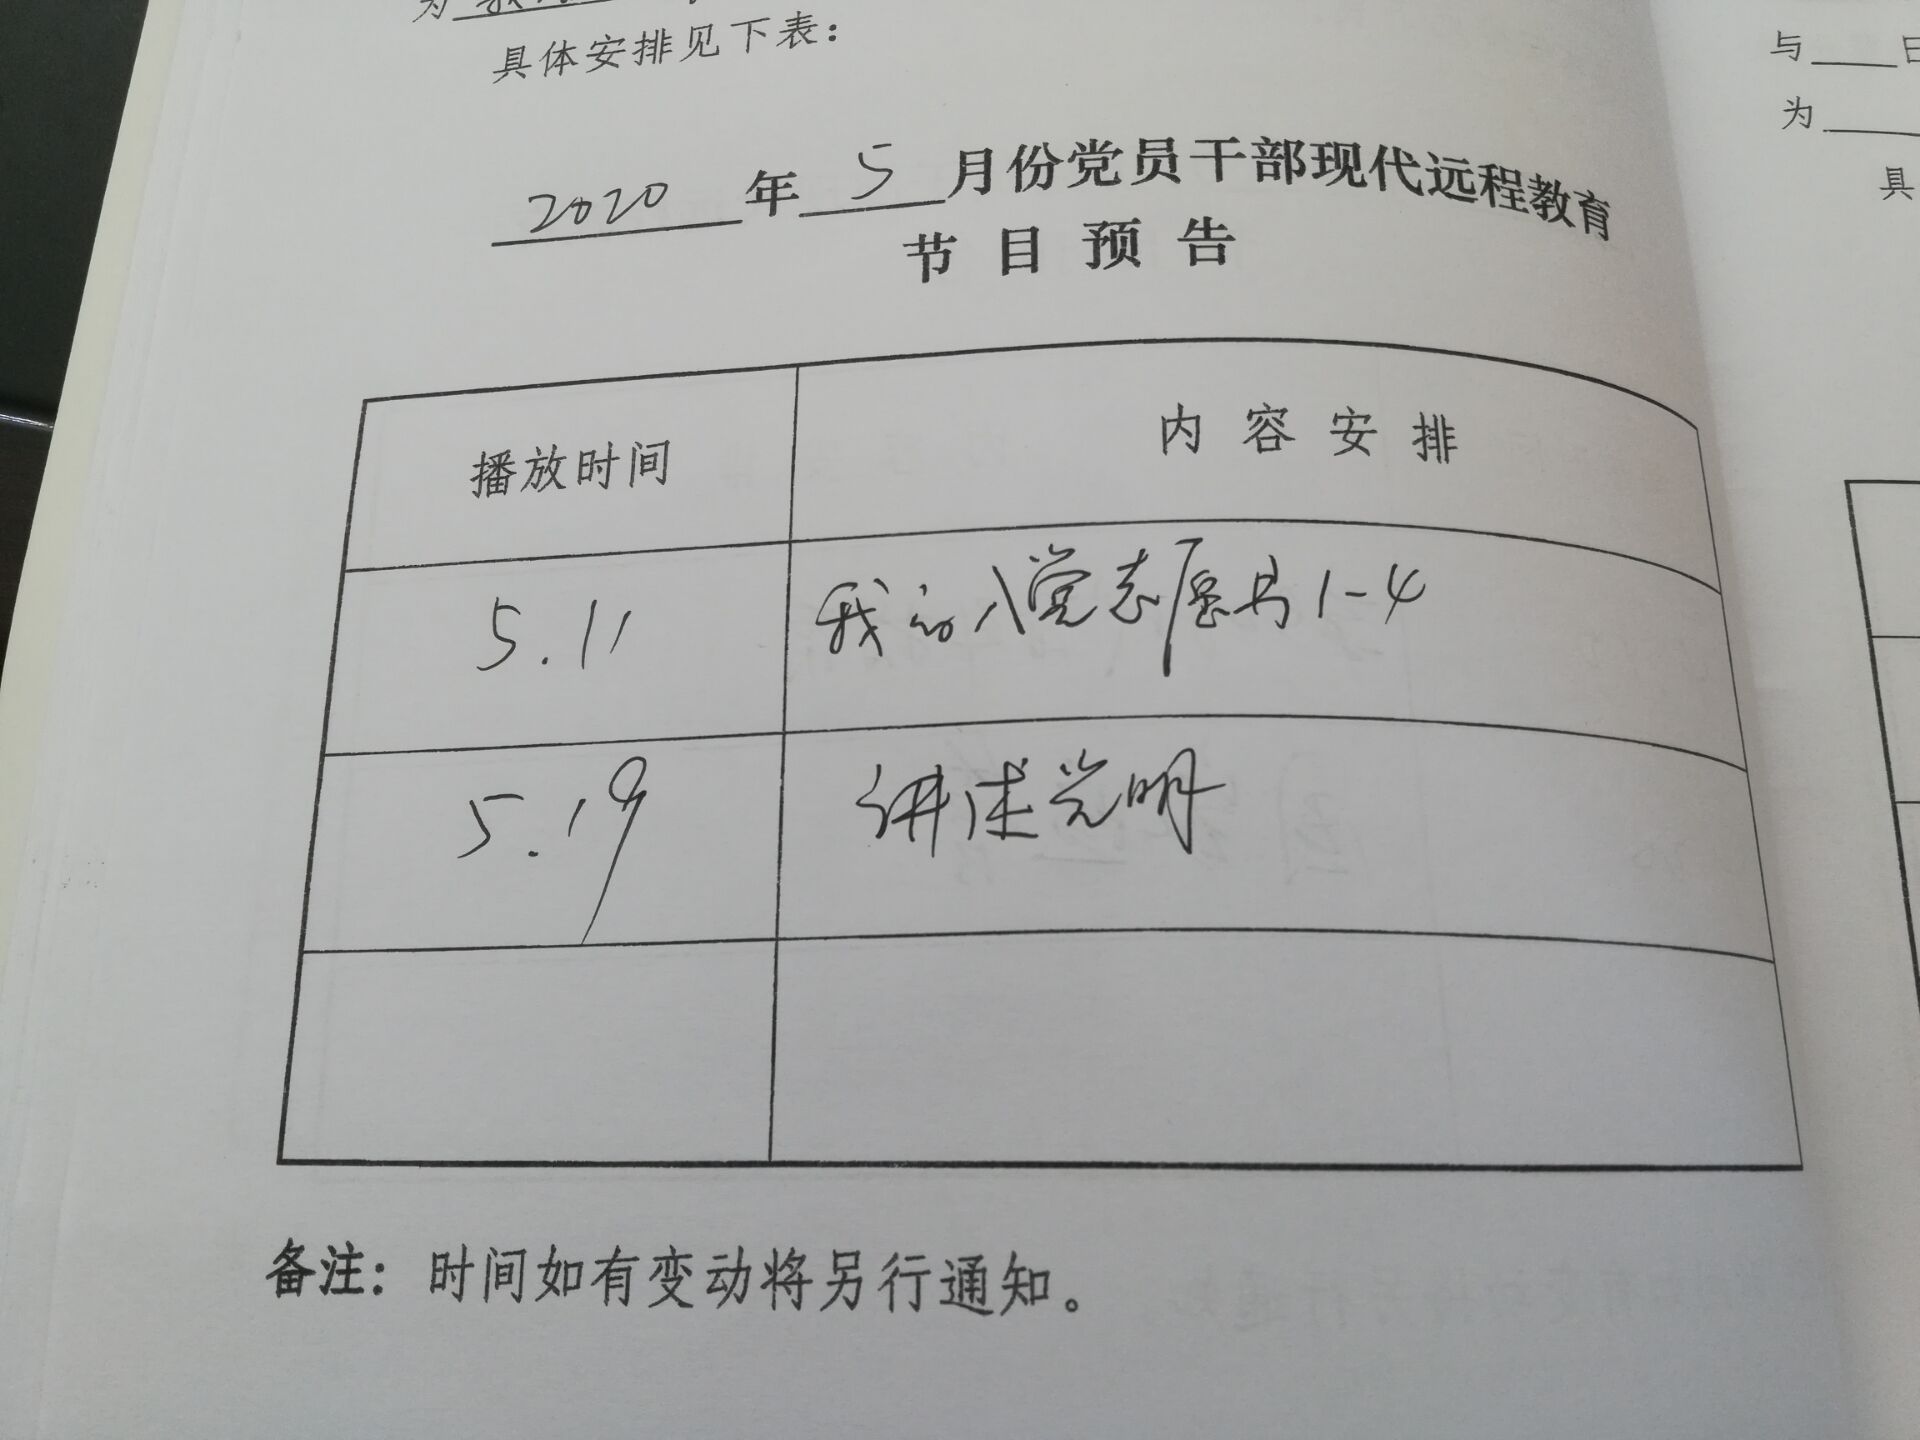 为
具体安排见下表：
2020年5月份党员干部现代远程教育
节目预告
播放时间 内容安排
5.11 我的入党志愿书1-4
5.19 讲述光明
备注：时间如有变动将另行通知。
与 日
为
具